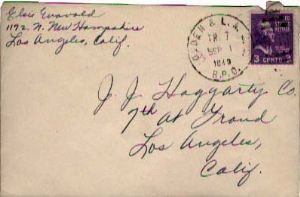 Elsie Enevold
1192 N. New Hampshire
Los Angeles, Calif.
OGDEN & L.A.
TR 7
SEP 1
1949
R.P.O.
3 CENTS 3
J. J. Haggarty Co.
7th at Grand
Los Angeles,
Calif.